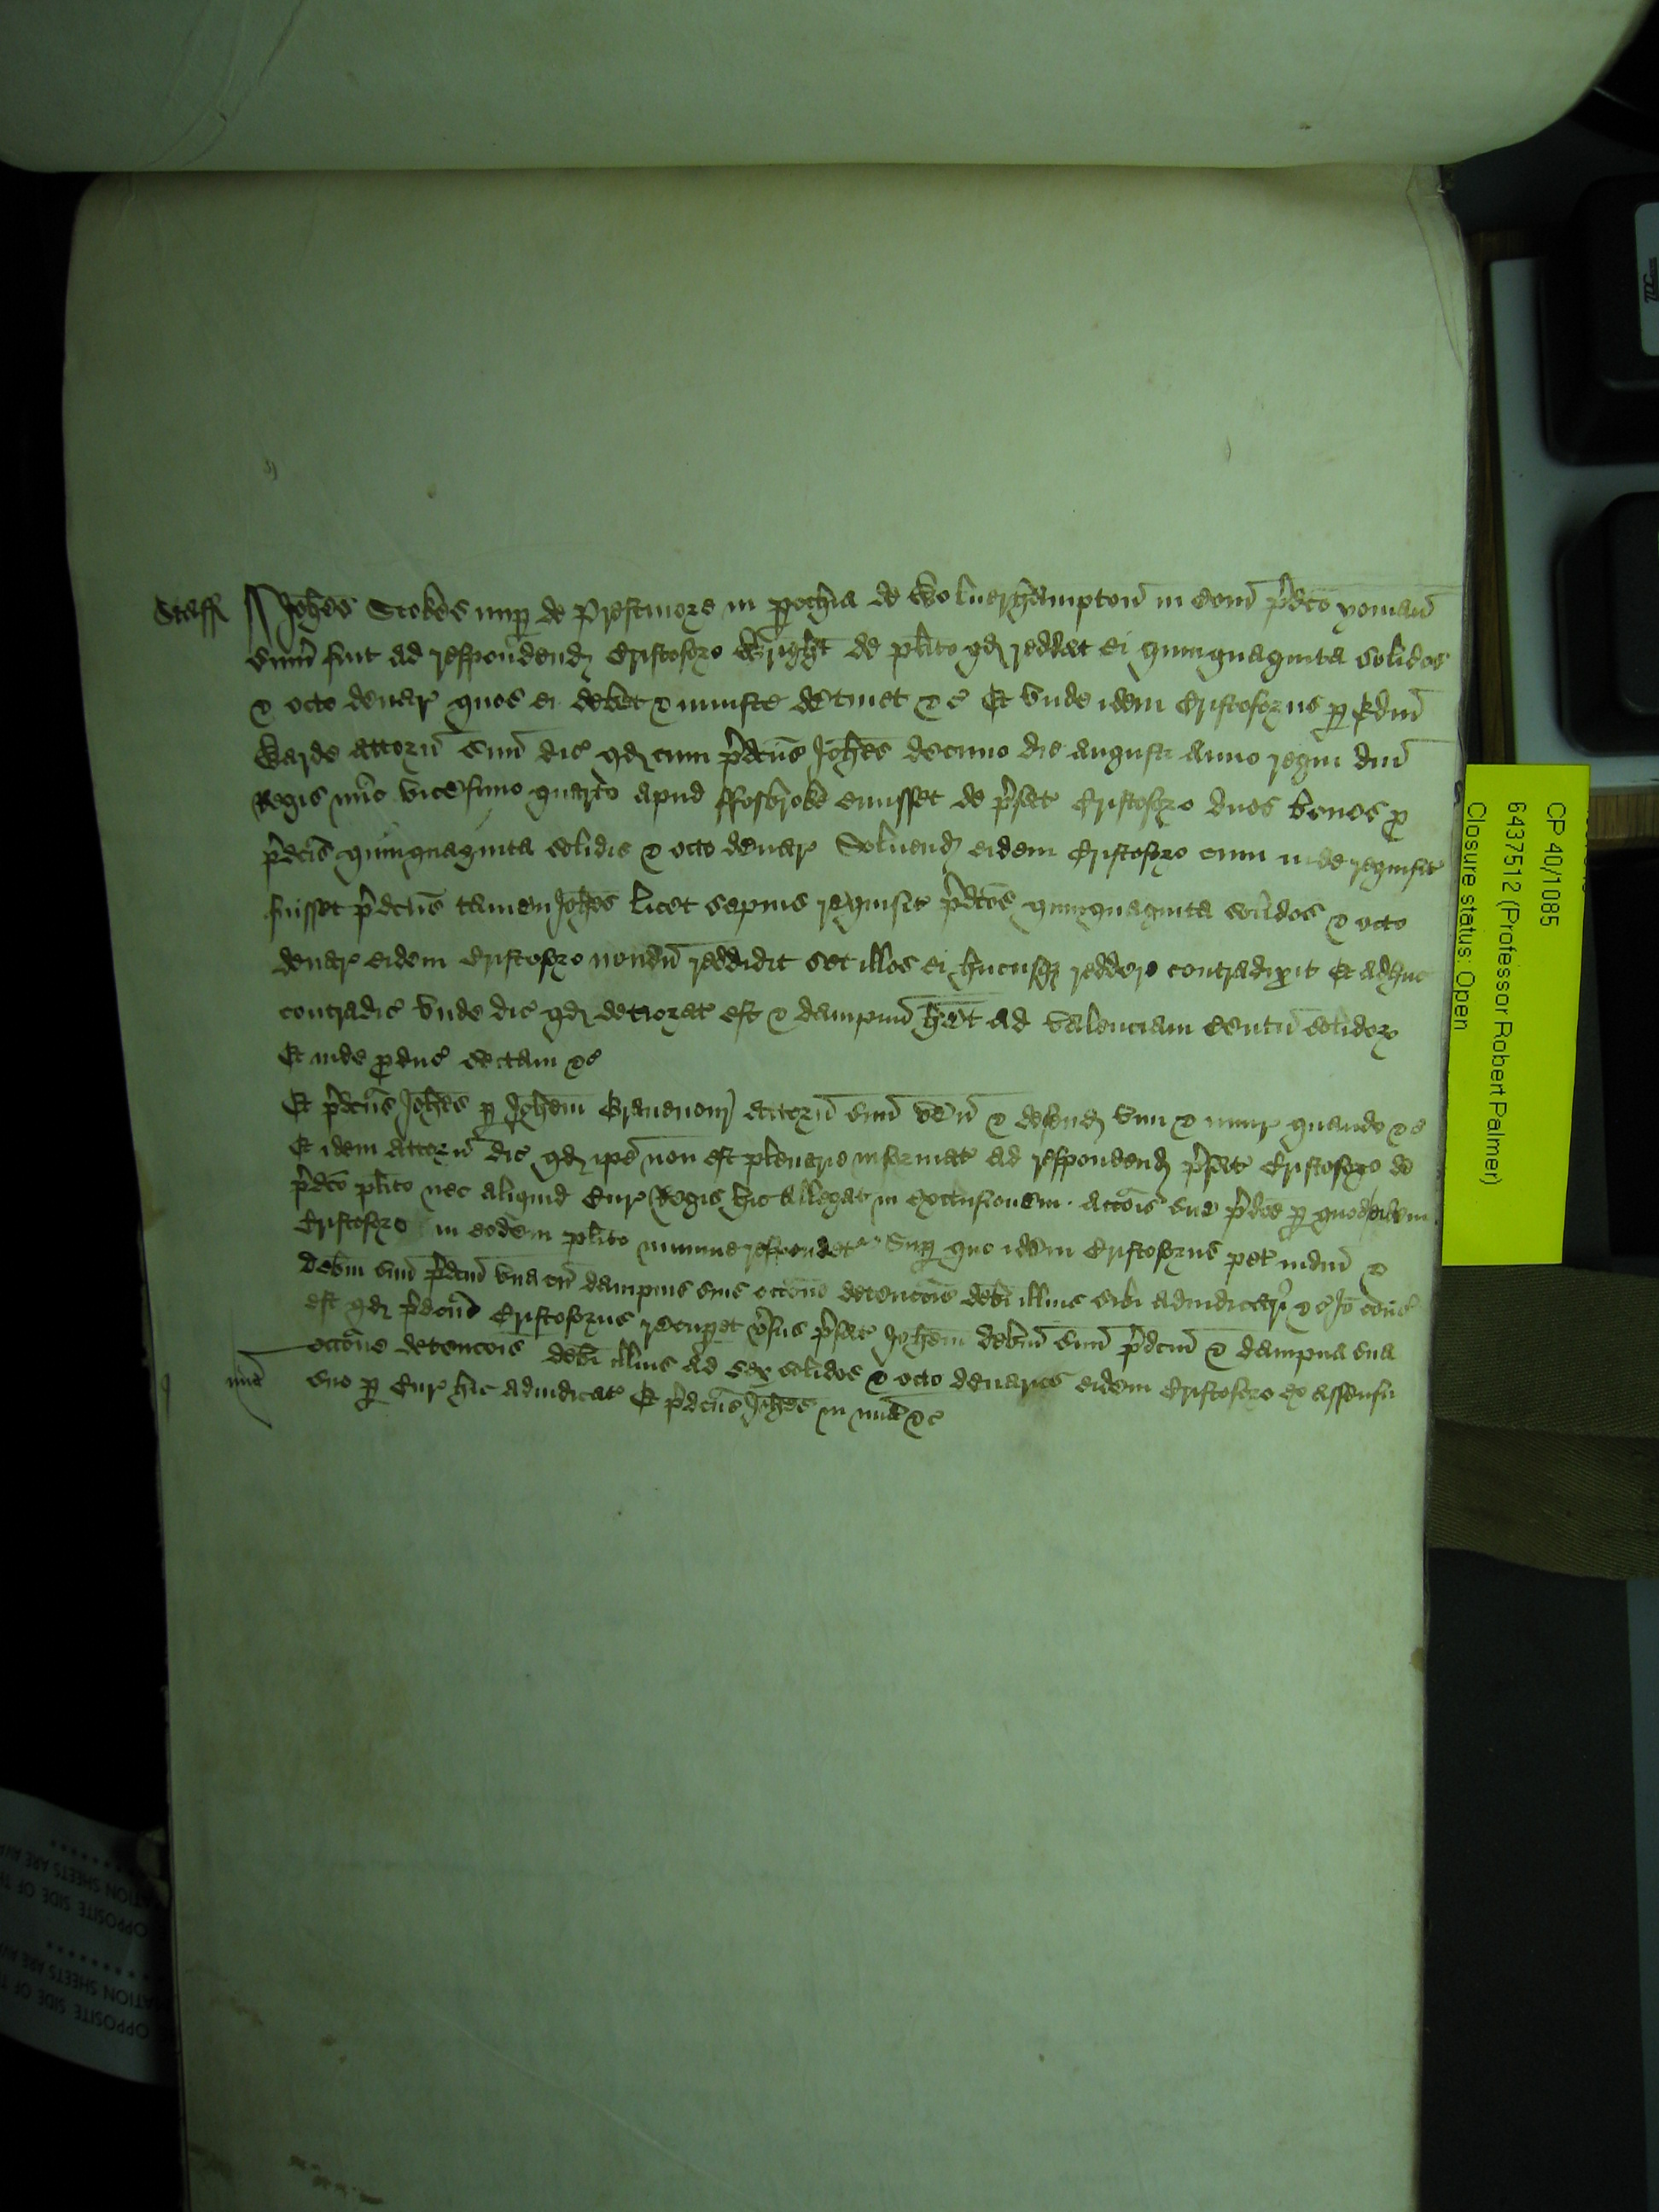 Staff Johes Stokes nup de Prestmore in pochia de Wolverhampton in Com pdco yoman
sum fuit ad respondend Cristofero Wright de plito qd reddat ei quinquaginta solidos
& octo denar quos ei debet & iniuste detinet &c Et unde idem Cristoferus p
Warde attorn suu dic qd cum pdcus Johes decimo die Augusti anno regni dni
Regis nuc vicesimo quarto apud fforbroke emisset de pfat Cristofero duos boves p
pdcis quinquaginta solidis & octo denar Solvend eidem Cristofero cum inde requisit
fuisset pdcus tamen Johes licet sepius requisit pdcos quinquaginta solidos & octo
denar eidem Cristofero nondu reddidit set illos ei hucusq reddere contradixit Et adhuc
contradic Unde dic qd deteriorat est & dampnu het ad valenciam Centu solidor
Et inde pduc sectam &c
Et pdcus Johes p Johem attorn suu ven & defend vim & iniur quando &c
Et idem attorn dic qd ipe non est plenarie informat ad respondend pfat Cristofero de
pdco plito nec aliquid Cur Regis hic allegat in exclusionem accois sue pdce p quod eidem
Cristofero in eodem plito minime respondetur Sup quo idem Cristoferus pet iudm &
debm suu pdcm una cu dampnis suis occone detencois debi illius sibi adiudicari &c Io cons
est qd pdcus Cristoferus recupet vsus pfat Johem debm suu pdcm & dampna sua
occone detencois debi illius ad sex solidos & octo denarios eidem Cristofero ex assensu
mia suo p Cur hic adiudicat Et pdcus Johes in mia &c
CP 40/1085
6437512 (Professor Robert Palmer)
Closure status: Open
OPPOSITE SIDE OF TH
ATION SHEETS ARE AVA
OPPOSITE SIDE OF TH
ATION SHEETS ARE AVA